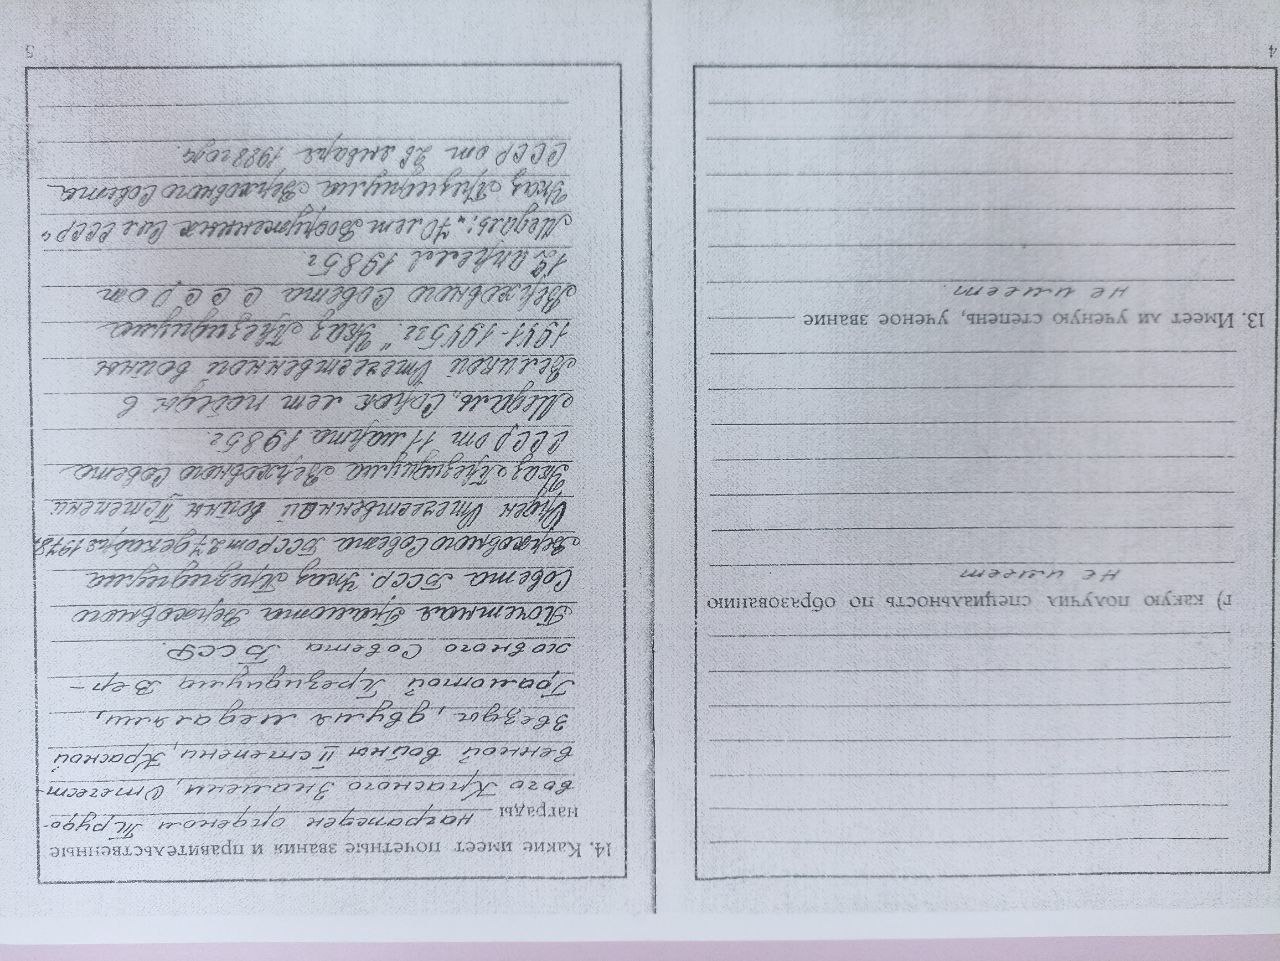 4
г) какую получил специальность по образованию
не имеет
13. Имеет ли ученую степень, ученое звание
не имеет.
5
14. Какие имеет почетные звания и правительственные
награды награжден орденом Трудо-
вого Красного Знамени, Отечест-
венной войны II степени, Красной
Звезды, двумя медалями,
Грамотой Президиума Вер-
ховного Совета БССР.
Почетная Грамота Верховного
Совета БССР. Указ Президиума
Верховного Совета БССР от 27 декабря 1978г.
Орден Отечественной войны II степени
Указ Президиума Верховного Совета
СССР от 11 марта 1985г.
Медаль „Сорок лет победы в
Великой Отечественной войне
1941-1945гг." Указ Президиума
Верховного Совета СССР от
12 апреля 1985г.
Медаль: „70 лет Вооруженных Сил СССР"
Указ Президиума Верховного Совета
СССР от 28 января 1988 года.